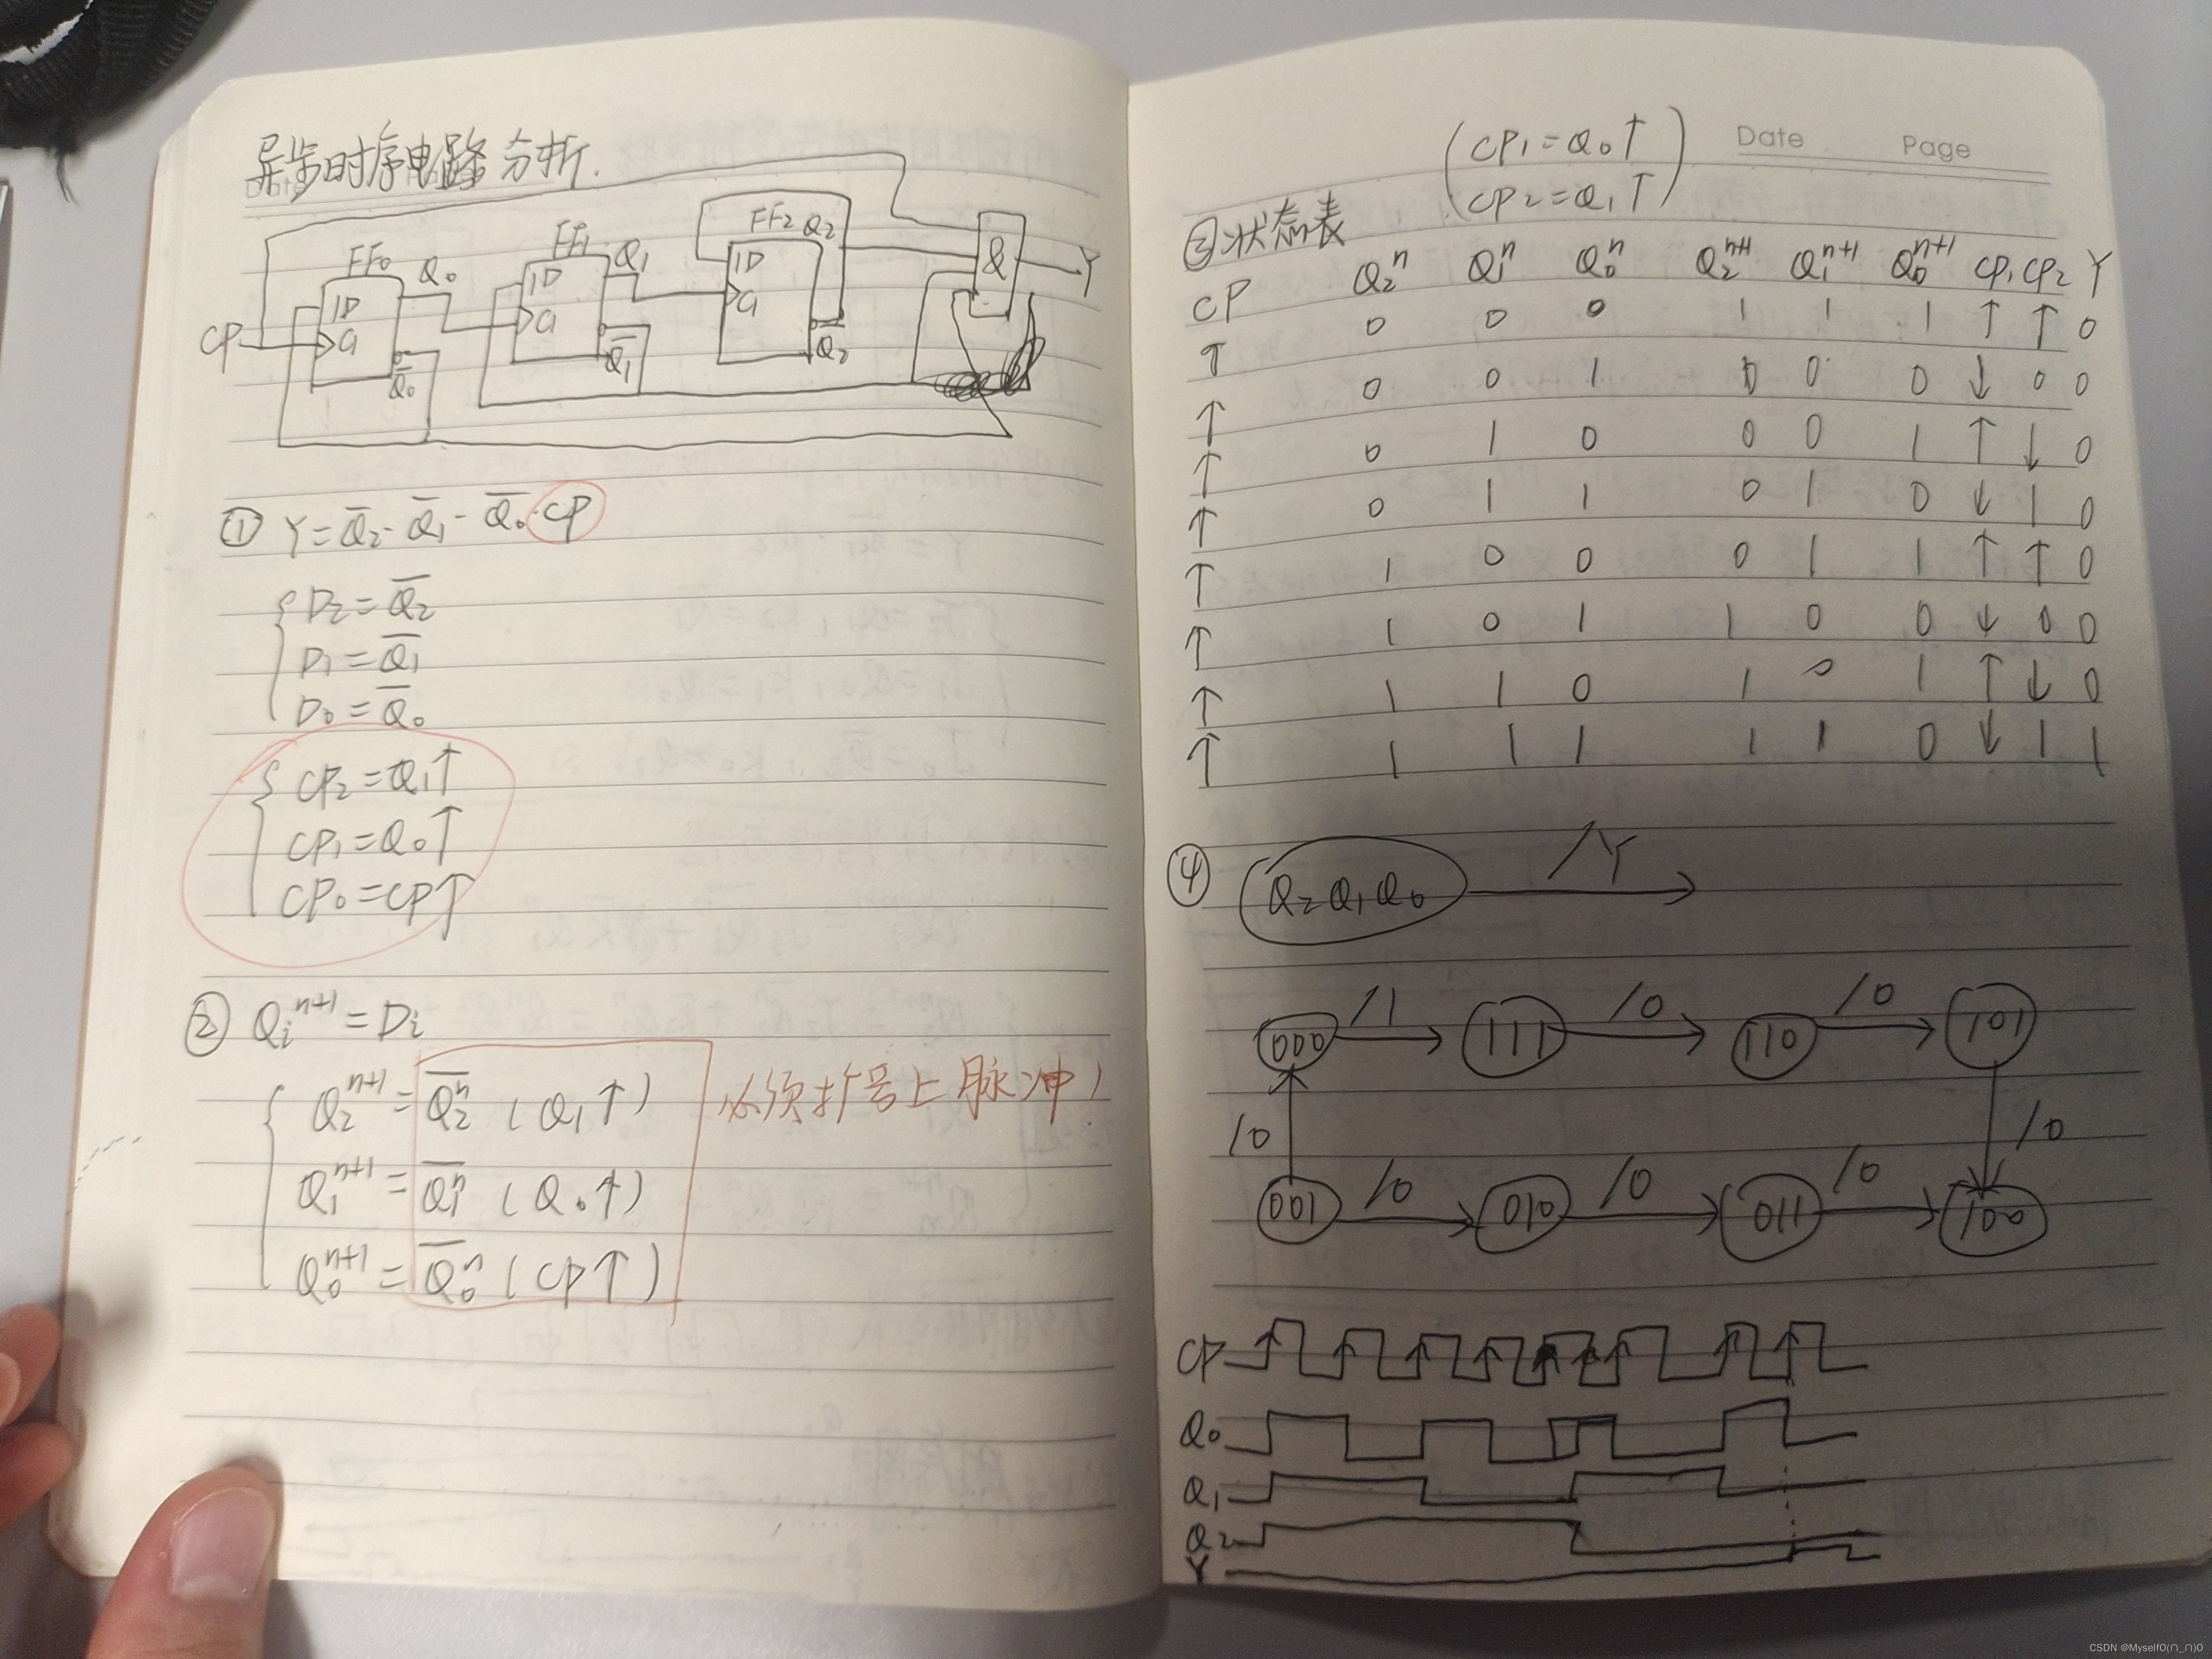 异步时序电路分析.
FF0 Q0 FF1 Q1 FF2 Q2
1D 1D 1D & Y
CP C1 C1 C1
Q̅0 Q̅1 Q̅2
① Y = Q̅2 · Q̅1 · Q̅0 · CP
D2 = Q̅2
D1 = Q̅1
D0 = Q̅0
CP2 = Q1↑
CP1 = Q0↑
CP0 = CP↑
② Qi^{n+1} = Di
Q2^{n+1} = Q̅2^n (Q1↑) 必须扩号上脉冲!
Q1^{n+1} = Q̅1^n (Q0↑)
Q0^{n+1} = Q̅0^n (CP↑)
Date Page
(CP1 = Q0↑
CP2 = Q1↑)
③ 状态表
CP Q2^n Q1^n Q0^n Q2^{n+1} Q1^{n+1} Q0^{n+1} CP1 CP2 Y
↑ 0 0 0 1 1 1 ↑ ↑ 0
↑ 0 0 1 0 0 0 ↓ 0 0
↑ 0 1 0 0 0 1 ↑ ↓ 0
↑ 0 1 1 0 1 0 ↓ 1 0
↑ 1 0 0 0 1 1 ↑ ↑ 0
↑ 1 0 1 1 0 0 ↓ 0 0
↑ 1 1 0 1 0 1 ↑ ↓ 0
↑ 1 1 1 1 1 0 ↓ 1 1
④ Q2Q1Q0 /Y
000 /1 111 /0 110 /0 101
/0 /0
001 /0 010 /0 011 /0 100
CP
Q0
Q1
Q2
Y
CSDN @MyselfO(∩_∩)O